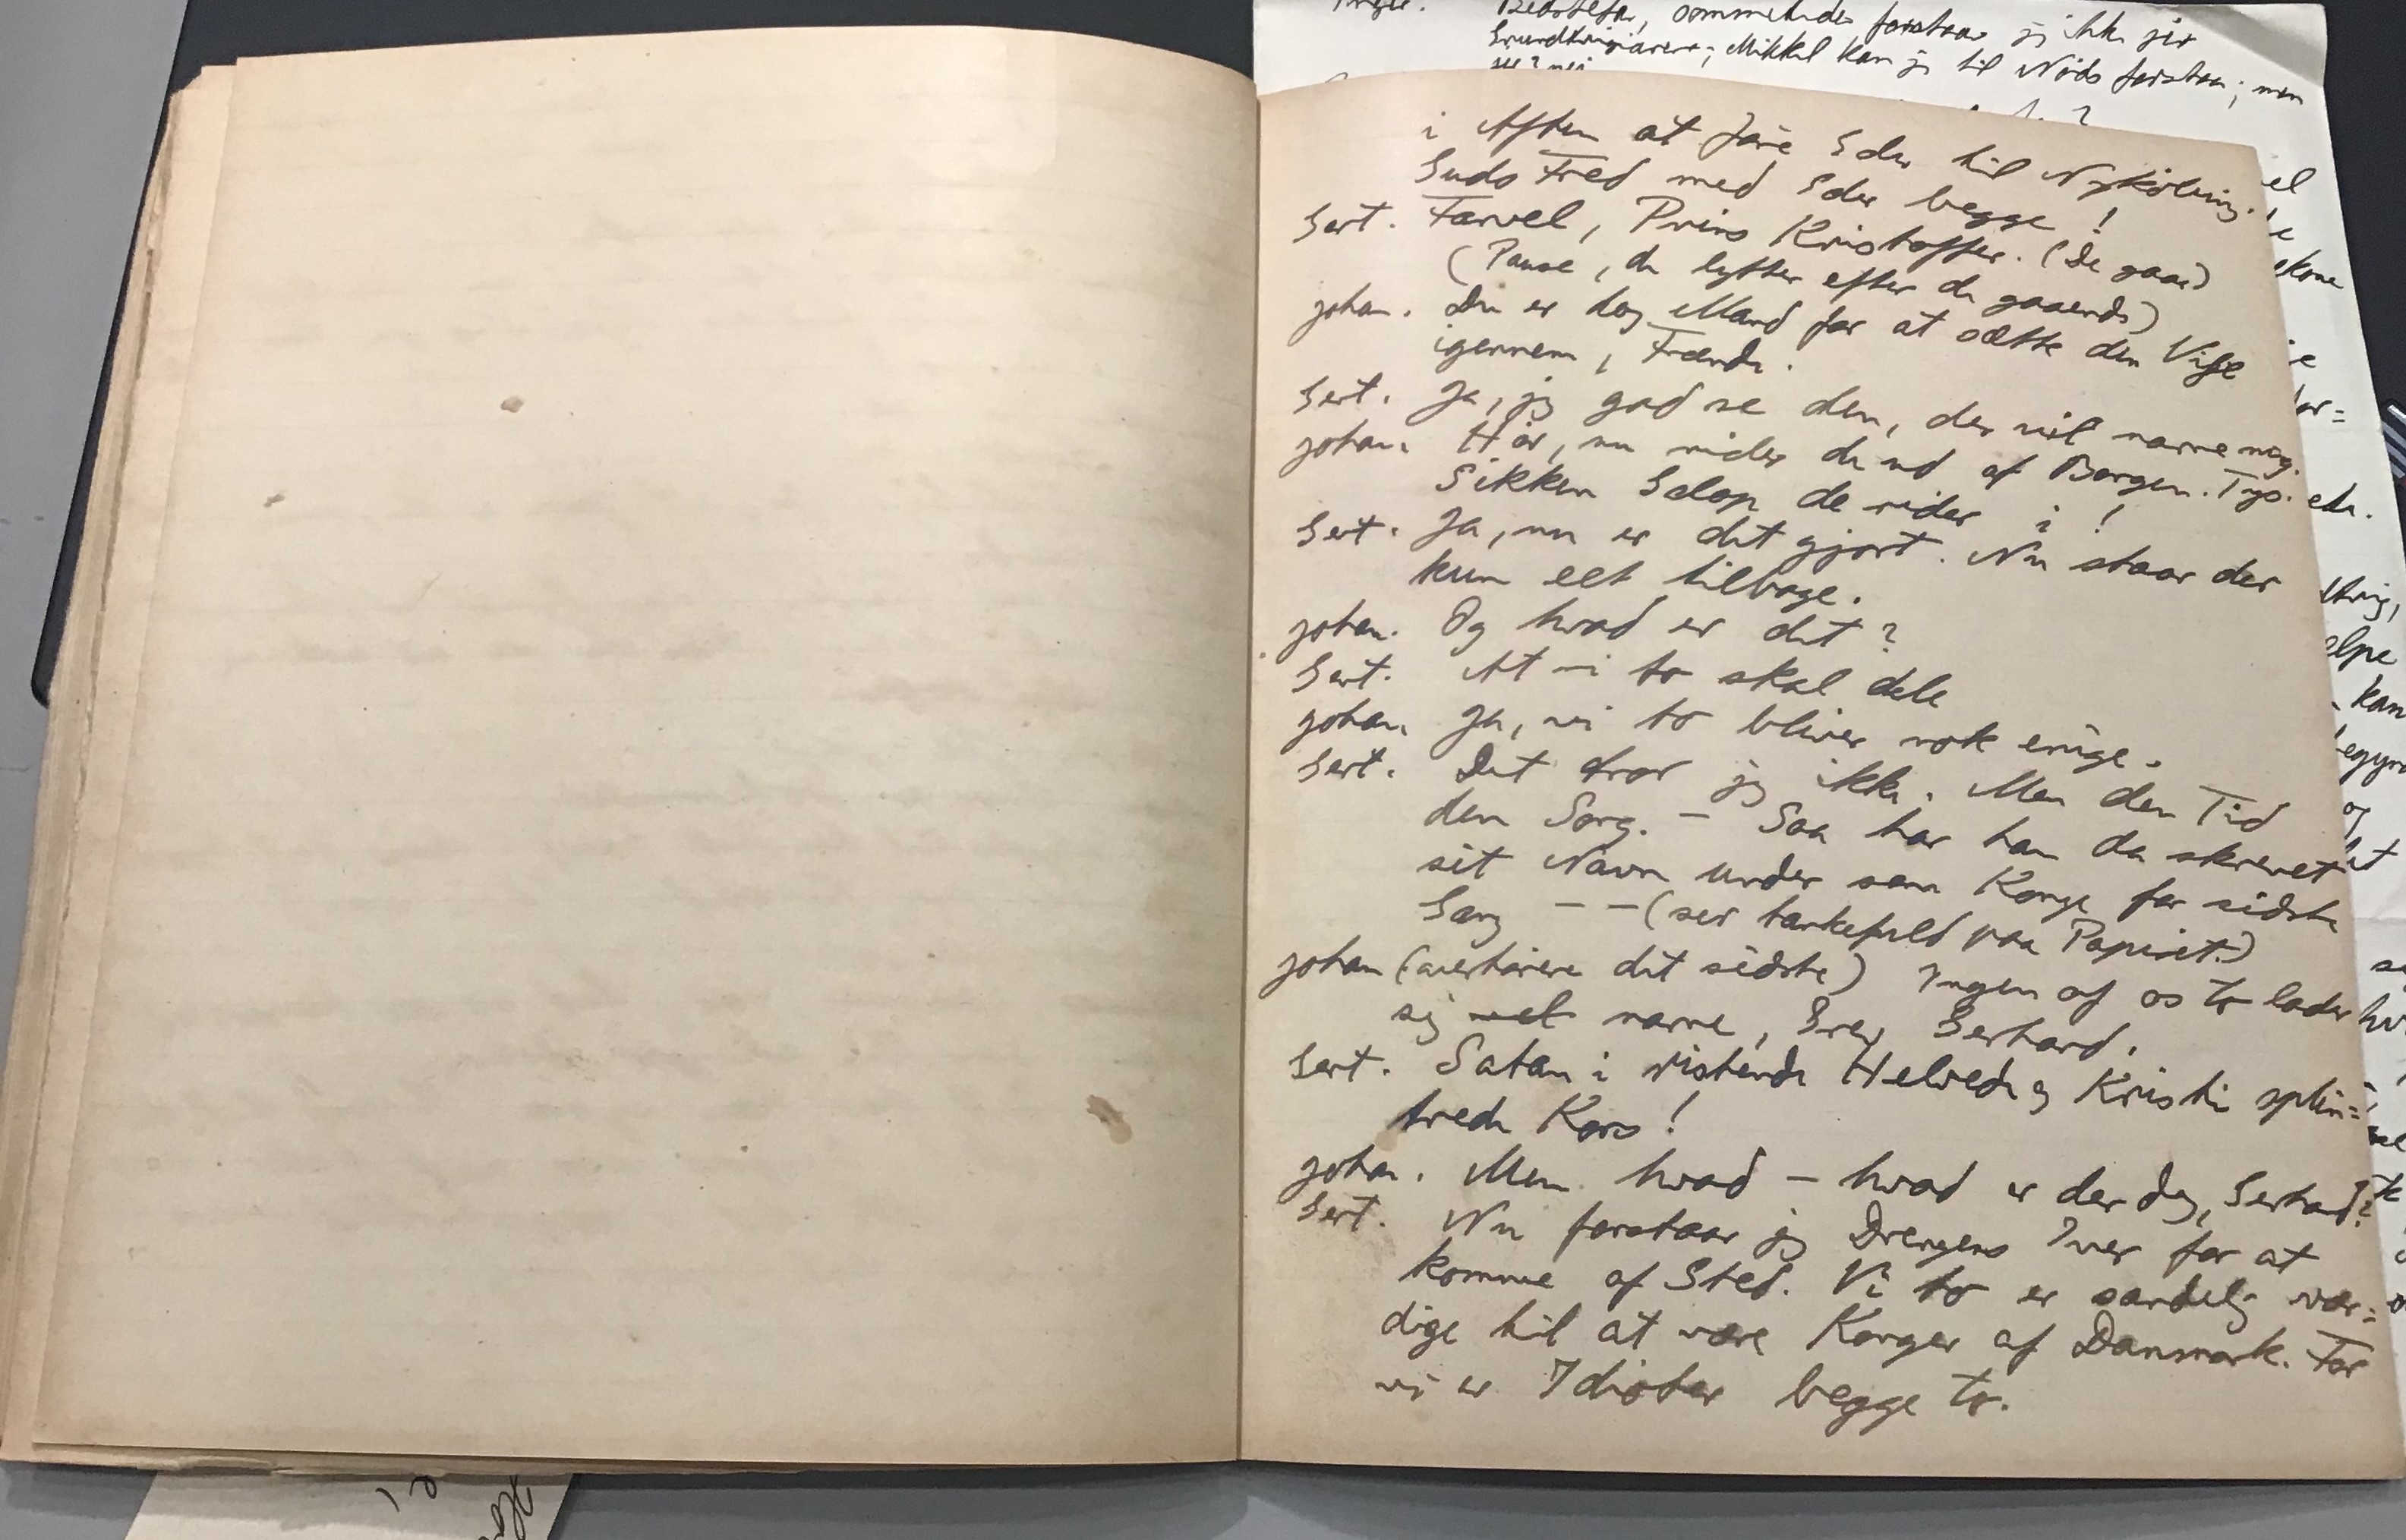 Bedstefar, sommetider forstaar jeg ikke jer
Grundtvigianere; Mikkel kan jeg til Nöds forstaa; men
i Aften at före Eder til Nyköbing.
Guds Fred med Eder begge!
Gert. Farvel, Prins Kristoffer. (De gaar)
(Pause, de lytter efter de gaaende)
Johan. Du er dog Mand for at sætte din Vilje
igennem, Frænde.
Gert. Ja, jeg gad se den, der vil narre mig.
Johan. Hör, nu rider de ud af Borgen. Tys.
Sikken Galop de rider i!
Gert. Ja, nu er det gjort. Nu staar der
kun eet tilbage.
Johan. Og hvad er det?
Gert. At vi to skal dele
Johan. Ja, vi to bliver nok enige.
Gert. Det tror jeg ikke. Men den Tid
den Sorg. — Saa har han da skrevet
sit Navn under som Konge for sidste
Gang — — (ser tankefuld paa Papiret.)
Johan (overhörer det sidste) Ingen af os to lader
sig narre, Grev Gerhard.
Gert. Satan i Helvede og Kristi splin=
trede Kors!
Johan. Men hvad — hvad er der dog, Gerhard?
Gert. Nu forstaar jeg Drengens Iver for at
komme af Sted. Vi to er sandelig vær=
dige til at være Konger af Danmark. For
vi er Idioter begge to.